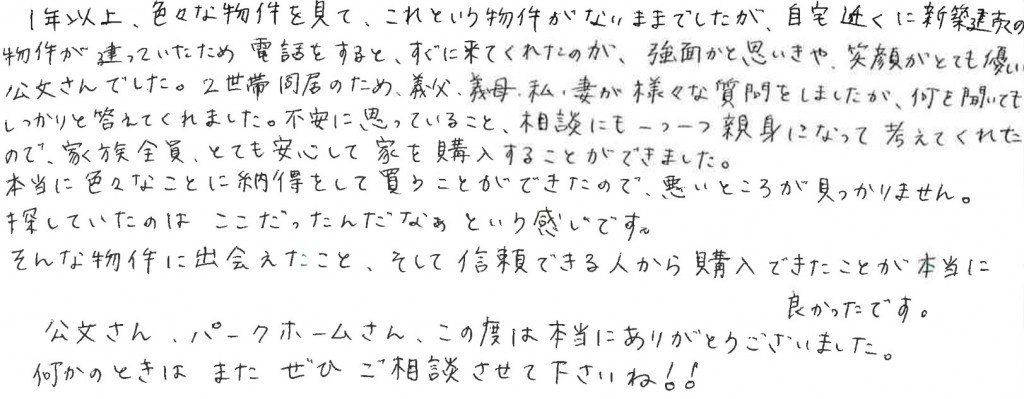 1年以上、色々な物件を見て、これという物件がないままでしたが、自宅近くに新築建売の
物件が建っていたため電話をすると、すぐに来てくれたのが、強面かと思いきや、笑顔がとても優しい
公文さんでした。2世帯同居のため、義父、義母、私・妻が様々な質問をしましたが、何を聞いても
しっかりと答えてくれました。不安に思っていること、相談にも一つ一つ親身になって考えてくれた
ので、家族全員、とても安心して家を購入することができました。
本当に色々なことに納得をして買うことができたので、悪いところが見つかりません。
探していたのは ここだったんだなぁ という感じです。
そんな物件に出会えたこと、そして信頼できる人から購入できたことが本当に
良かったです。
公文さん、パークホームさん、この度は本当にありがとうございました。
何かのときは また ぜひ ご相談させて下さいね!!